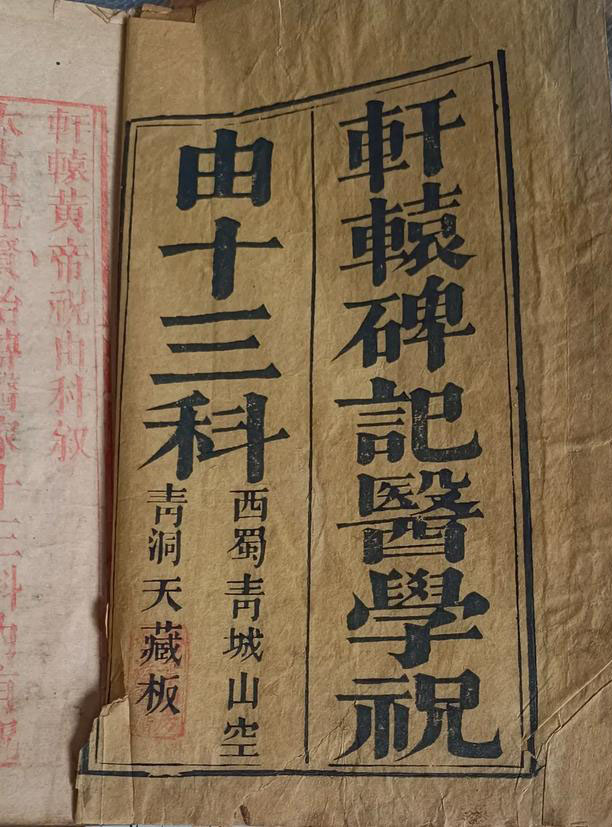 軒轅碑記醫學祝
由十三科
西蜀青城山空
青洞天藏板
軒轅黃帝祝由科叙